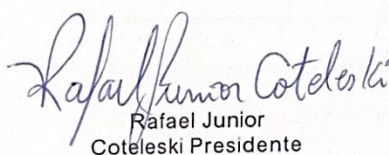 Rafael Junior Coteleski
Rafael Junior
Coteleski Presidente